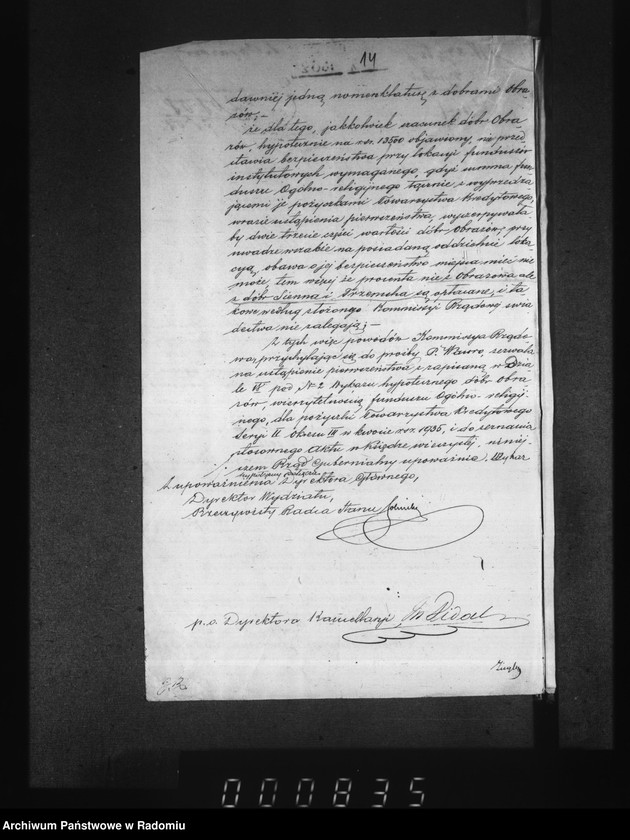 14
dawniéj jedną nomenklaturą z dobrami Obra-
zów;–
że dla tego, jakkolwiek szacunek dóbr Obra-
zów, hypotecznie na rsr. 13500 objawiony, nie przed
stawia bezpieczeństwa przy lokacyi funduszów
instytutowych wymaganego, gdyż summa fun-
duszu Ogólno-religijnego łącznie z wyprzedza
jącemi ją pożyczkami Towarzystwa Kredytowego,
w razie ustąpienia pierwszeństwa, wyczerpywała
by dwie trzecie części wartości dóbr Obrazów, przy
uwadze wszakże na posiadaną oddzielnie loka
cyą, obawa o jej bezpieczeństwo miejsca mieć nie
może, tem więcej że procenta nie z Obrazowa ale
z dóbr Sienna i Trzemcha są opłacane, i ta
kowe według złożonego Kommissyi Rządowej świa
dectwa nie zalegają;–
Z tych więc powodów Kommissya Rządo
wa, przychylając się do prośby P. Wzuro, zezwala
na ustąpienie pierwszeństwa zapisaną w Dzia
le IV pod N° 2 Wykazu hypotecznego dóbr Obra
zów, wierzytelnością funduszu Ogólno-religij-
nego, dla pożyczki Towarzystwa Kredytowego
Seryi II Okresu III w kwocie rsr. 1935, i do zeznania
stosownego Aktu w Księdze wieczystej, niniej-
szem Rząd Gubernialny upoważnia. Wykaz
hypoteczny zwraca
Z upoważnienia Dyrektora Głównego,
Dyrektor Wydziału,
Rzeczywisty Radca Stanu
p.o. Dyrektora Kancellaryi
000835
Archiwum Państwowe w Radomiu